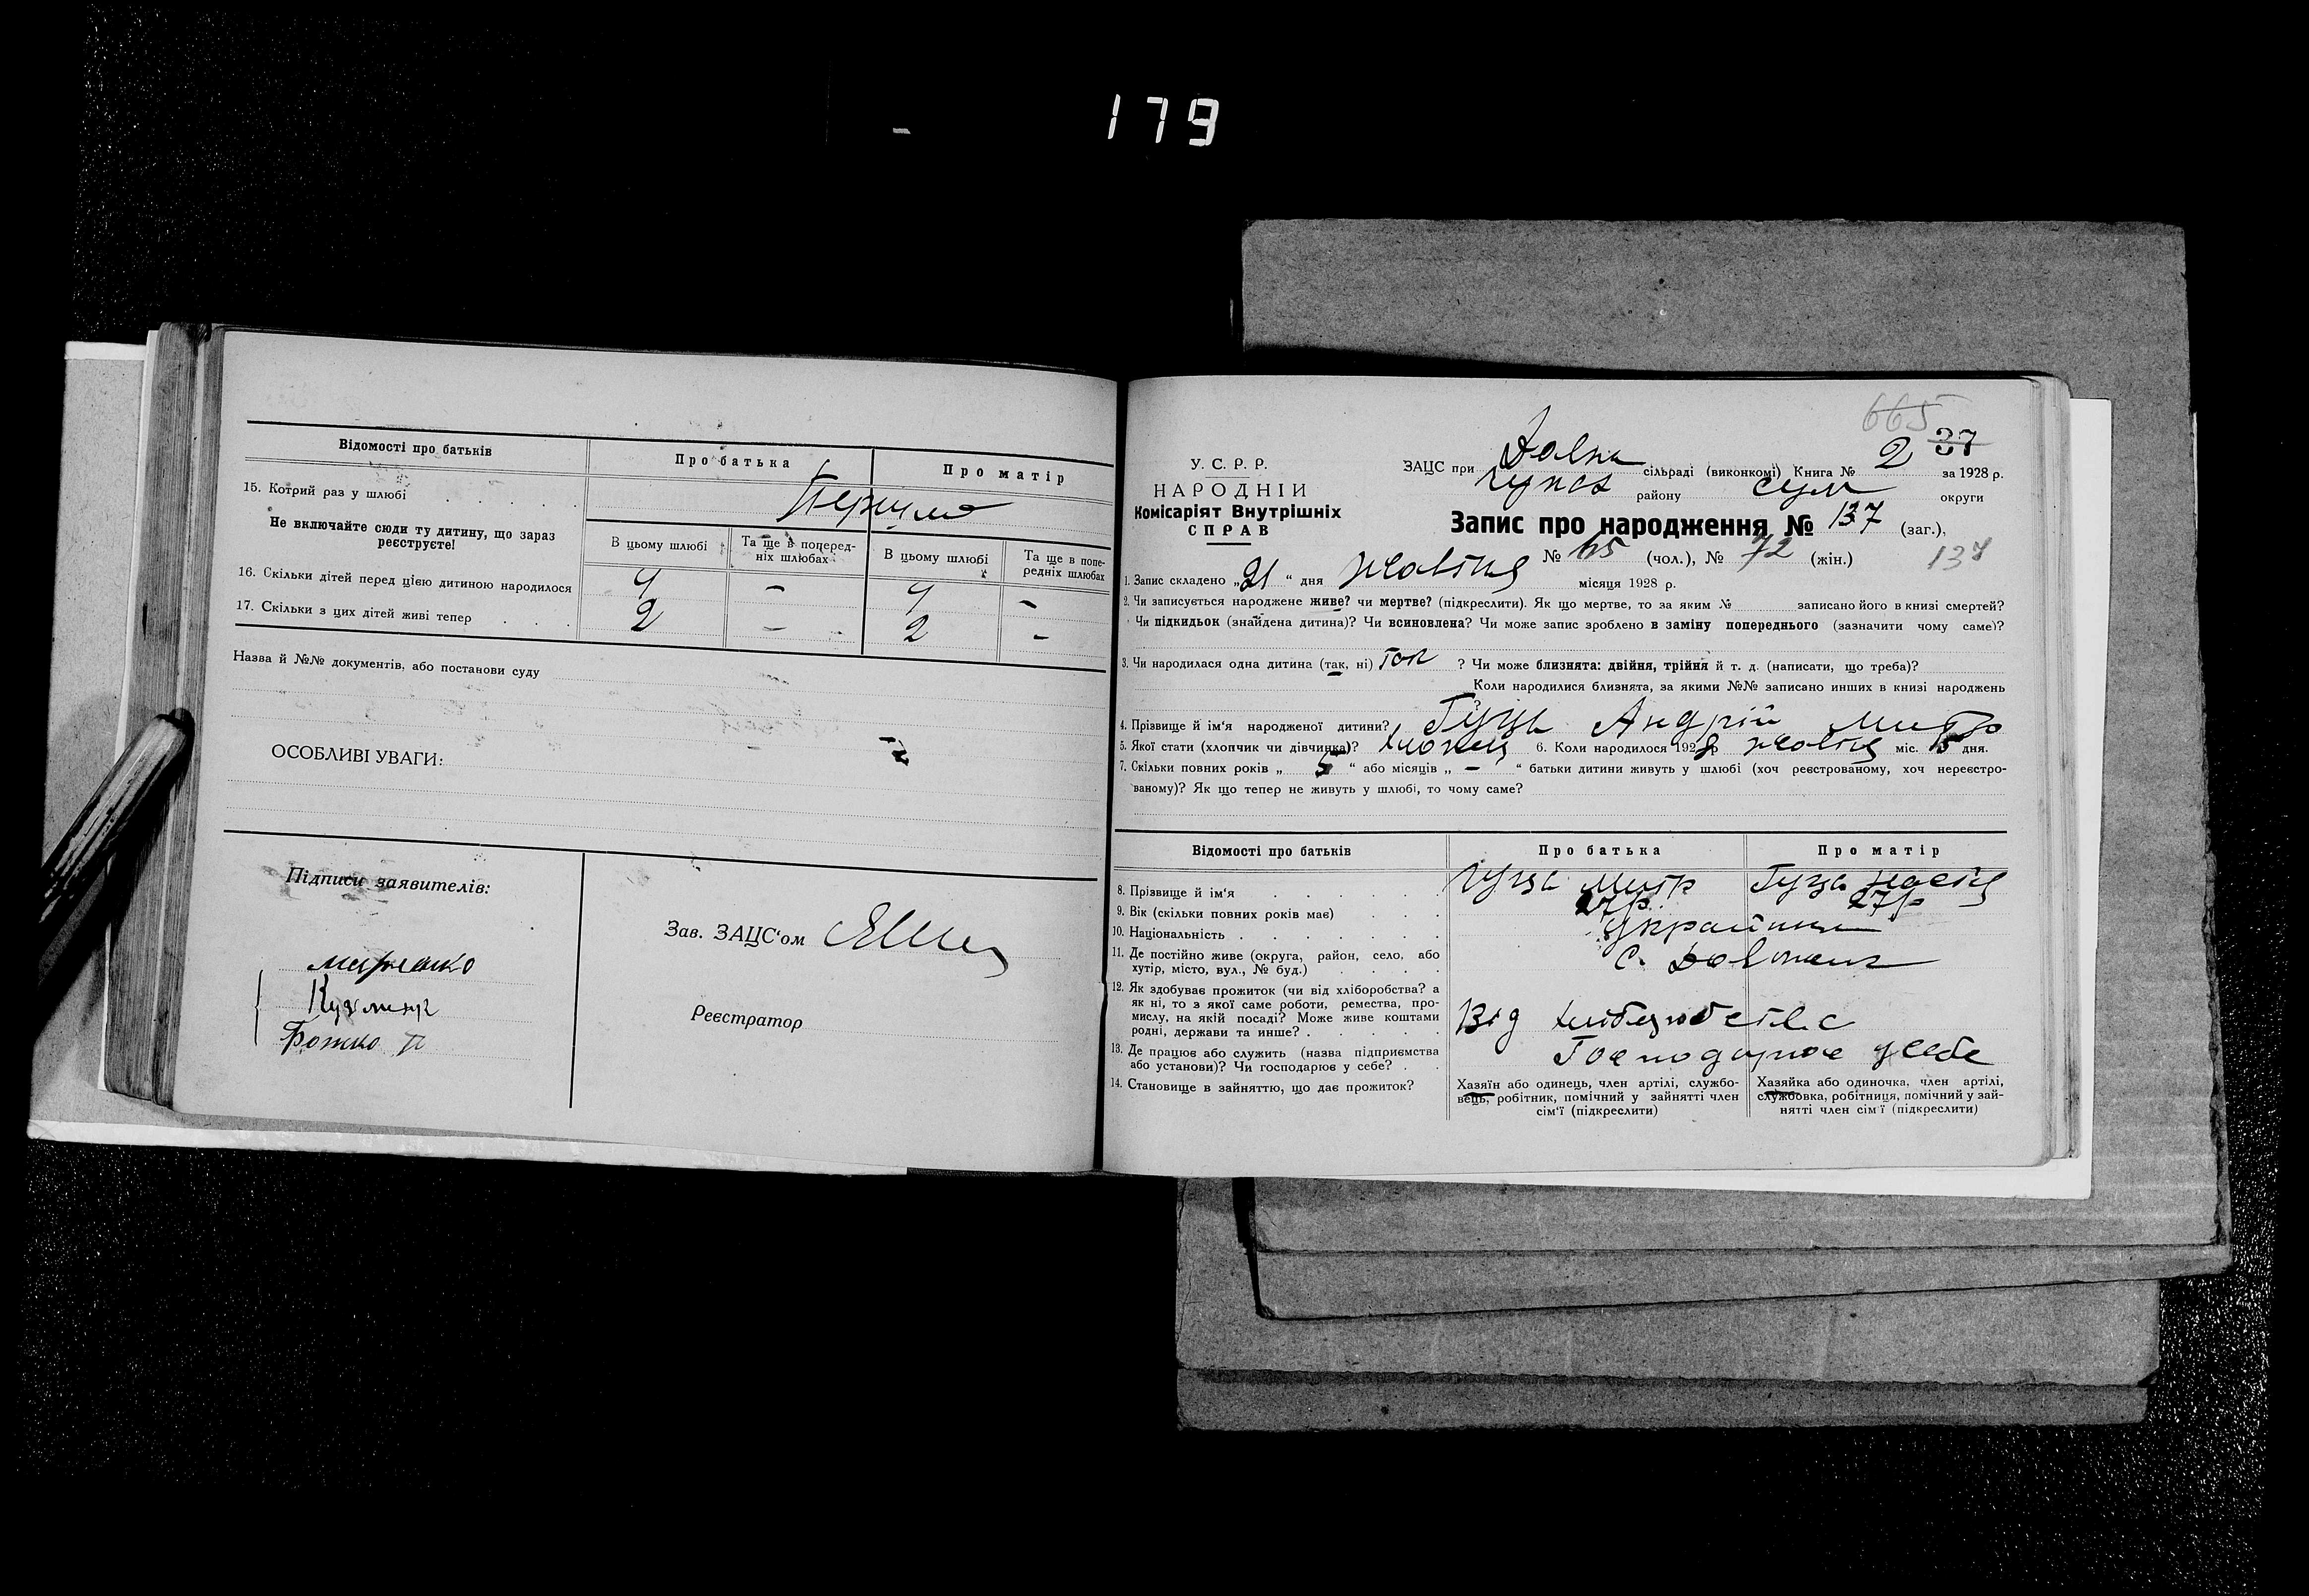 179
Відомості про батьків
Про батька
Про матір
15. Котрий раз у шлюбі
Не включайте сюди ту дитину, що зараз реєструєте!
В цьому шлюбі
Та ще в поперед-
ніх шлюбах
В цьому шлюбі
Та ще в попе-
редніх шлюбах
16. Скільки дітей перед цією дитиною народилося 4 - 4 -
17. Скільки з цих дітей живі тепер 2 - 2 -
Назва й №№ документів, або постанови суду
ОСОБЛИВІ УВАГИ:
Підписи заявителів:
Зав. ЗАЦС'ом
Кузменк
Божко П
Реєстратор
665
37
У. С. Р. Р.
НАРОДНІЙ
Комісаріят Внутрішніх
СПРАВ
ЗАЦС при сільраді (виконкомі) Книга № 2 за 1928 р.
району Сум округи
Запис про народження № 137 (заг.),
№ 65 (чол.), № 72 (жін.)
137
1. Запис складено „21“ дня жовтня місяця 1928 р.
2. Чи записується народжене живе? чи мертве? (підкреслити). Як що мертве, то за яким № записано його в книзі смертей?
Чи підкидьок (знайдена дитина)? Чи всиновлена? Чи може запис зроблено в заміну попереднього (зазначити чому саме)?
3. Чи народилася одна дитина (так, ні) так ? Чи може близнята: двійня, трійня й т. д. (написати, що треба)?
Коли народилися близнята, за якими №№ записано инших в книзі народжень
4. Прізвище й ім'я народженої дитини? Гуць Андрій Митр
5. Якої стати (хлопчик чи дівчинка)? хлопець 6. Коли народилося 1928 р жовтня міс. 15 дня.
7. Скільки повних років „ 5 “ або місяців „ - “ батьки дитини живуть у шлюбі (хоч реєстрованому, хоч нереєстро-
ваному)? Як що тепер не живуть у шлюбі, то чому саме?
Відомості про батьків
Про батька
Про матір
8. Прізвище й ім'я
9. Вік (скільки повних років має) 27р. 27р
10. Національність
11. Де постійно живе (округа, район, село, або
хутір, місто, вул., № буд.)
12. Як здобуває прожиток (чи від хліборобства? а
як ні, то з якої саме роботи, ремества, про-
мислу, на якій посаді? Може живе коштами
родні, держави та инше?
Від
13. Де працює або служить (назва підприємства
або установи)? Чи господарює у себе?
14. Становище в зайняттю, що дає прожиток?
Хазяїн або одинець, член артілі, службо-
вець, робітник, помічний у зайнятті член
сім'ї (підкреслити)
Хазяйка або одиночка, член артілі,
службовка, робітниця, помічний у зай-
нятті член сім'ї (підкреслити)